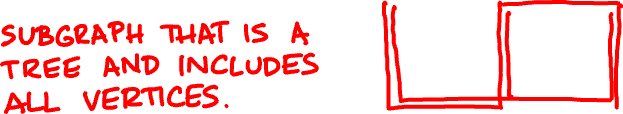 SUBGRAPH THAT IS A
TREE AND INCLUDES
ALL VERTICES.